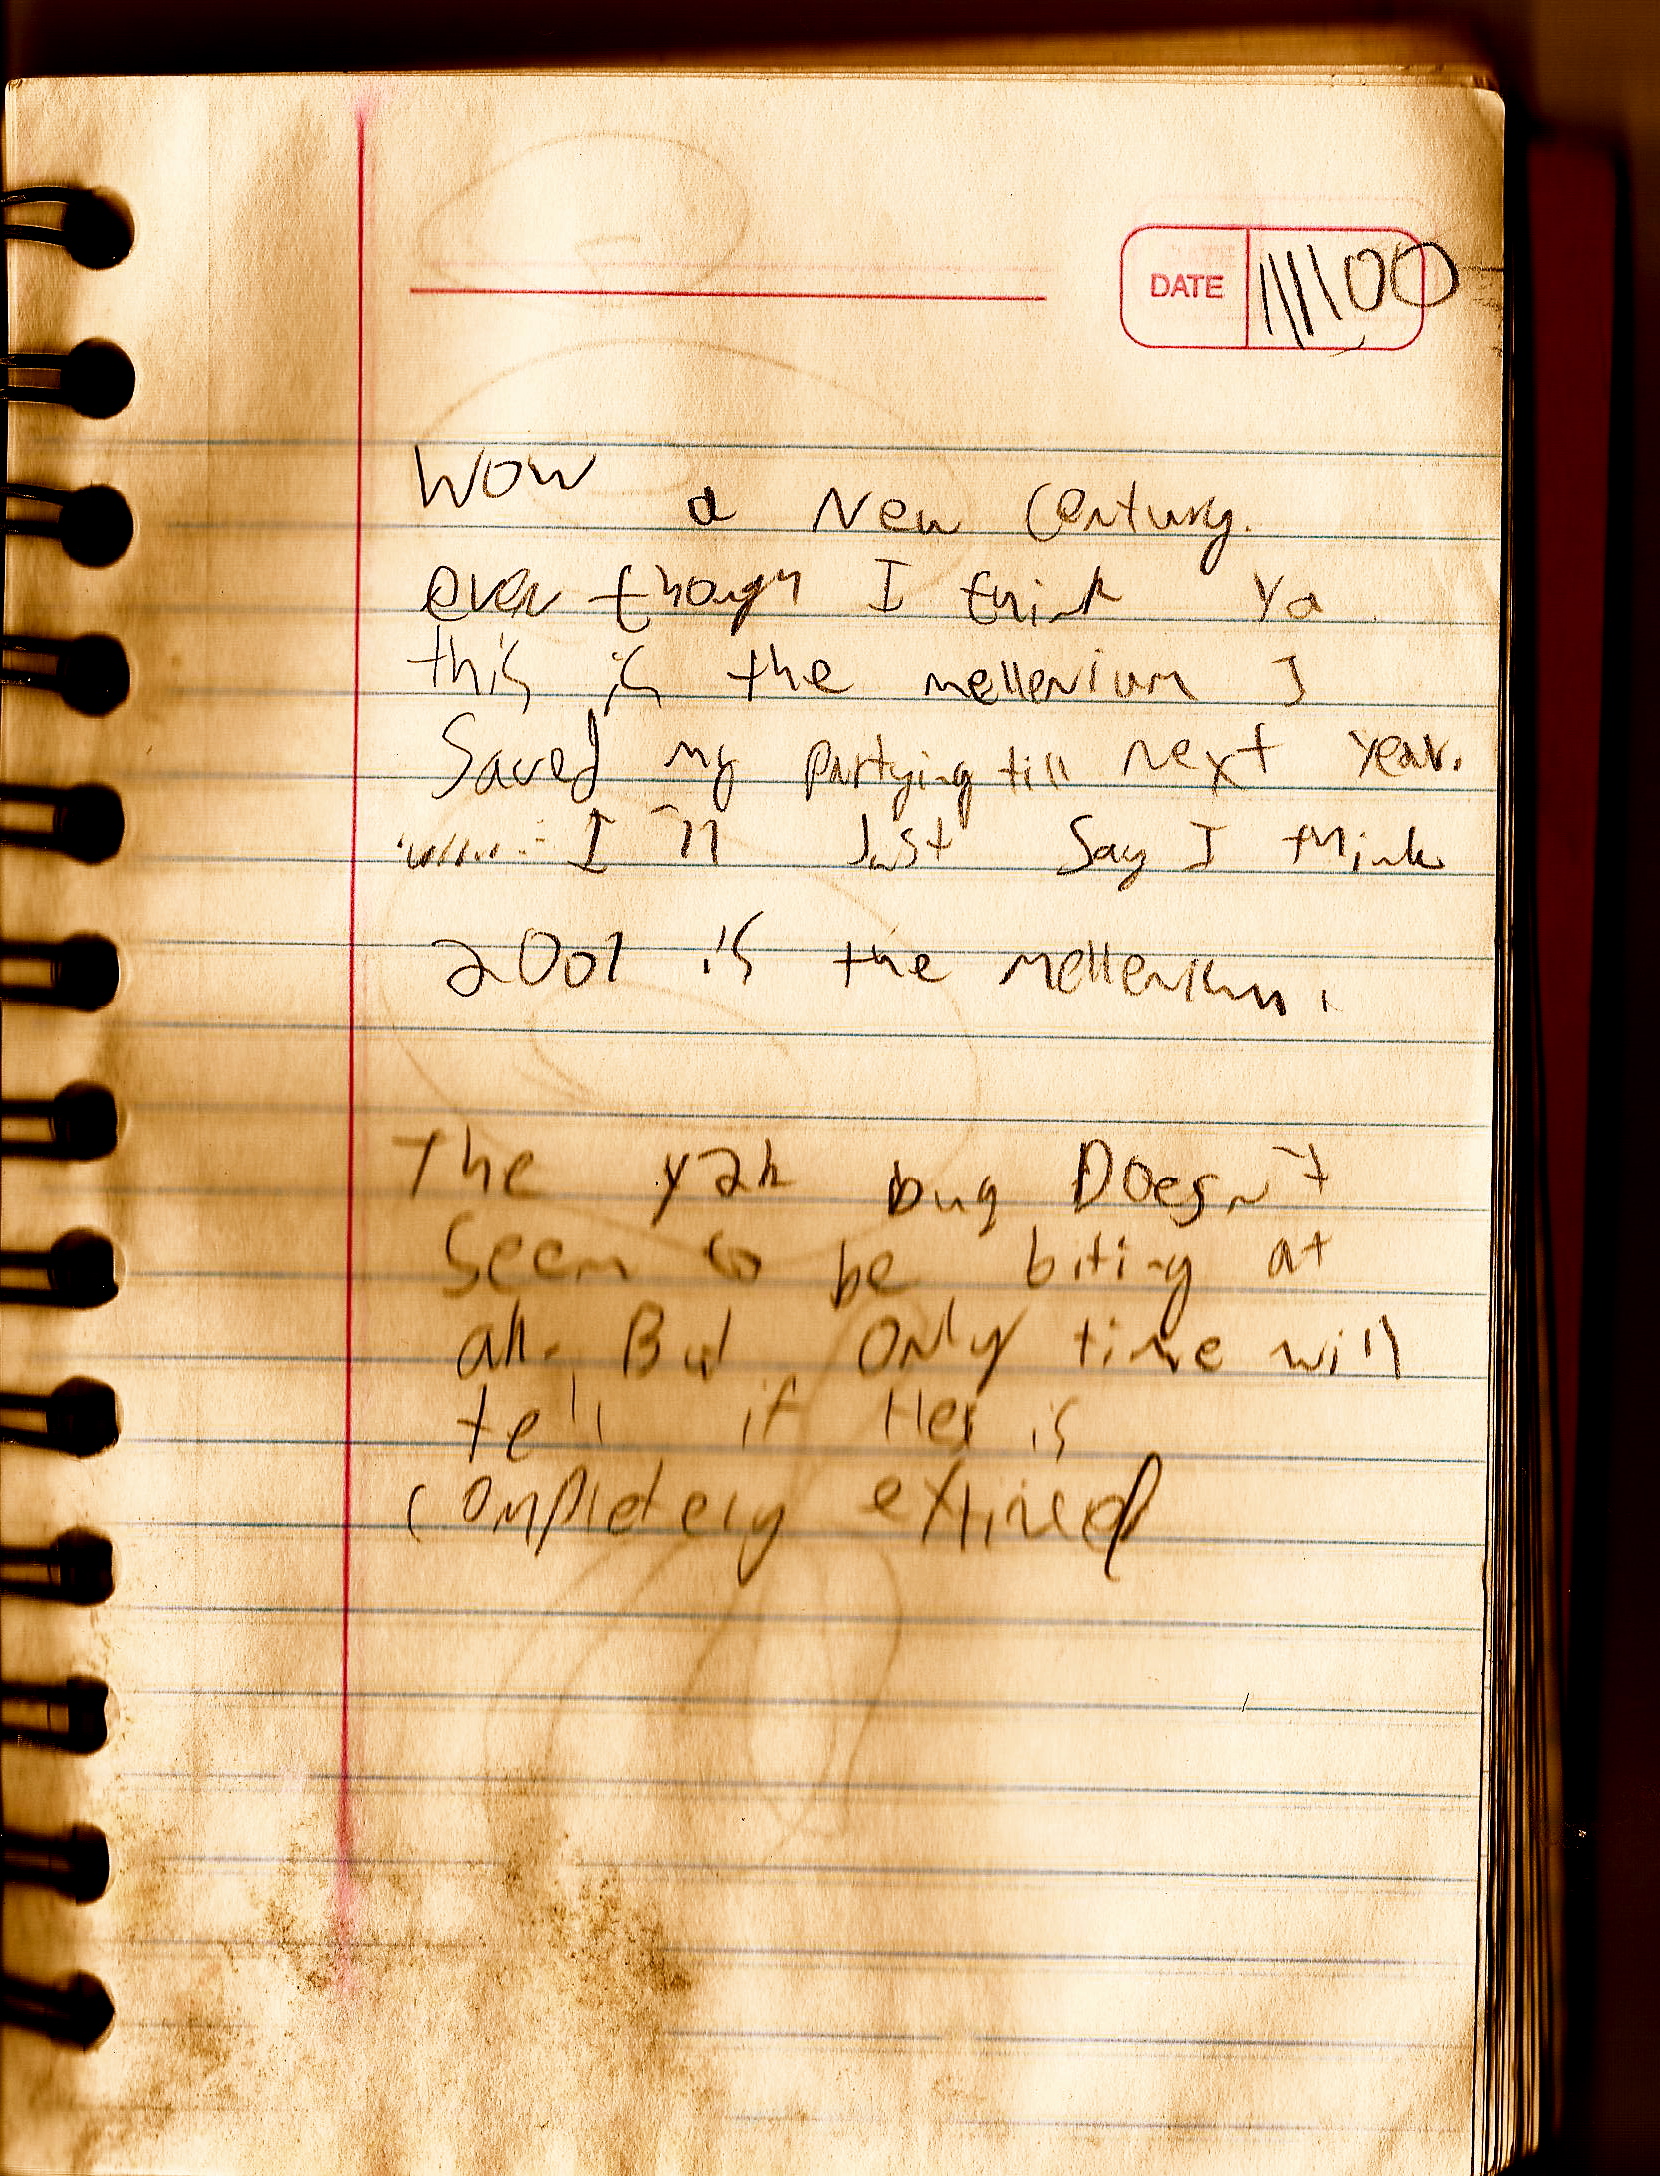 DATE 1/1/00
WOW a New Century.
even though I think Ya
this is the mellenium I
Saved my partying till next year.
I'll Just Say I think
2001 is the mellenium.
The y2k bug Doesn't
Seem to be biting at
all. But Only time will
tell if Hes is
completely extined